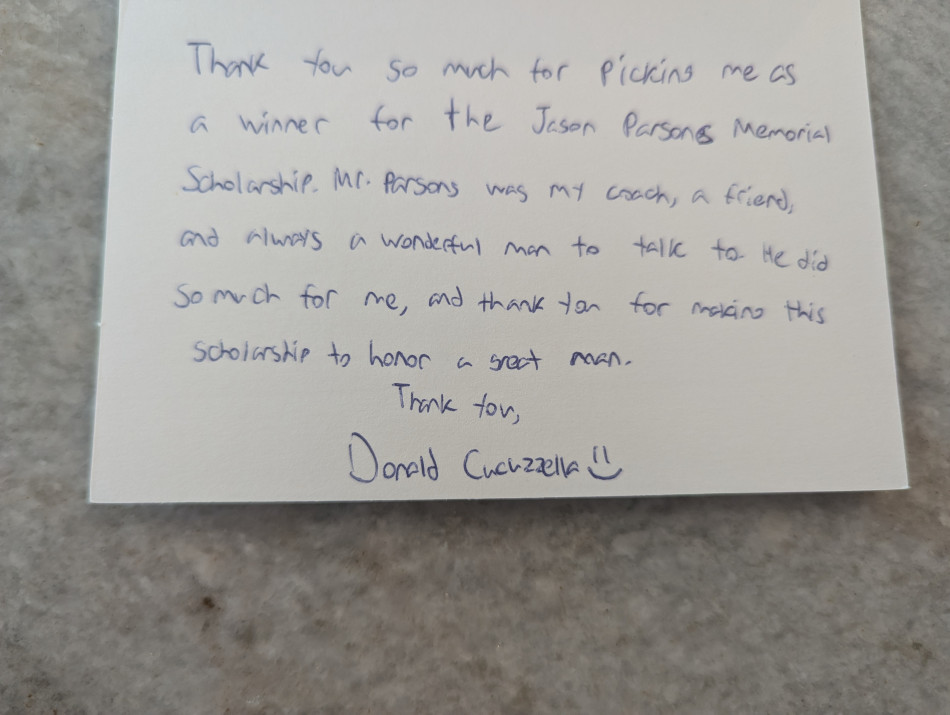 Thank you so much for picking me as
a winner for the Jason Parsons Memorial
Scholarship. Mr. Parsons was my coach, a friend,
and always a wonderful man to talk to. He did
so much for me, and thank you for making this
scholarship to honor a great man.
Thank you,
Donald Cucuzzella